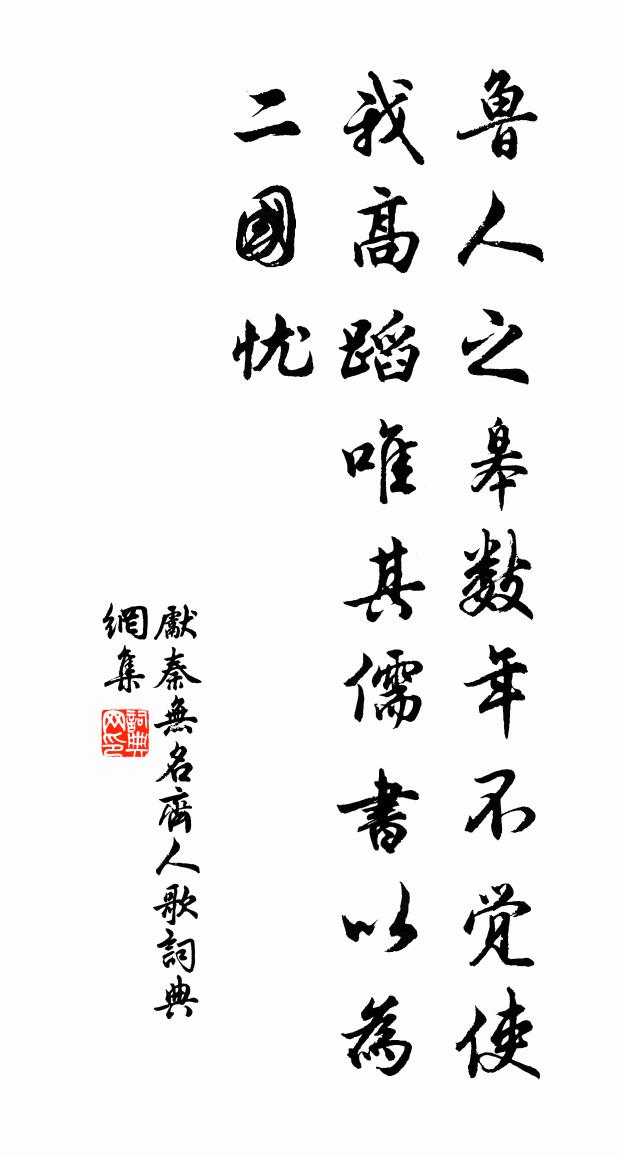 鲁人之皋数年不觉使
我高蹈唯其儒書以為
二國忧
獻秦無名齊人歌詞典
網集
詞典网印